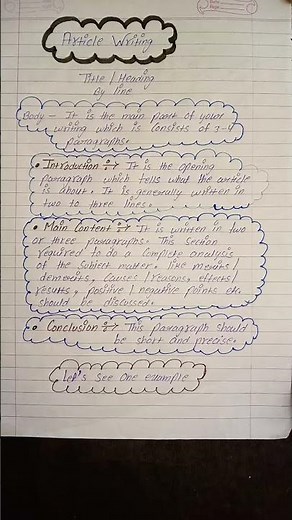 Article Writing
Title / Heading
By line
Body - It is the main part of your
writing which is consists of 3-4
paragraphs.
• Introduction :-> It is the opening
paragraph which tells what the article
is about. It is generally written in
two to three lines.
• Main Content :-> It is written in two
or three paragraphs. This section
required to do a complete analysis
of the subject matter. Like merits /
demerits, causes / reasons, effects /
results, positive / negative points etc.
should be discussed.
• Conclusion :-> This paragraph should
be short and precise.
Let's see one example